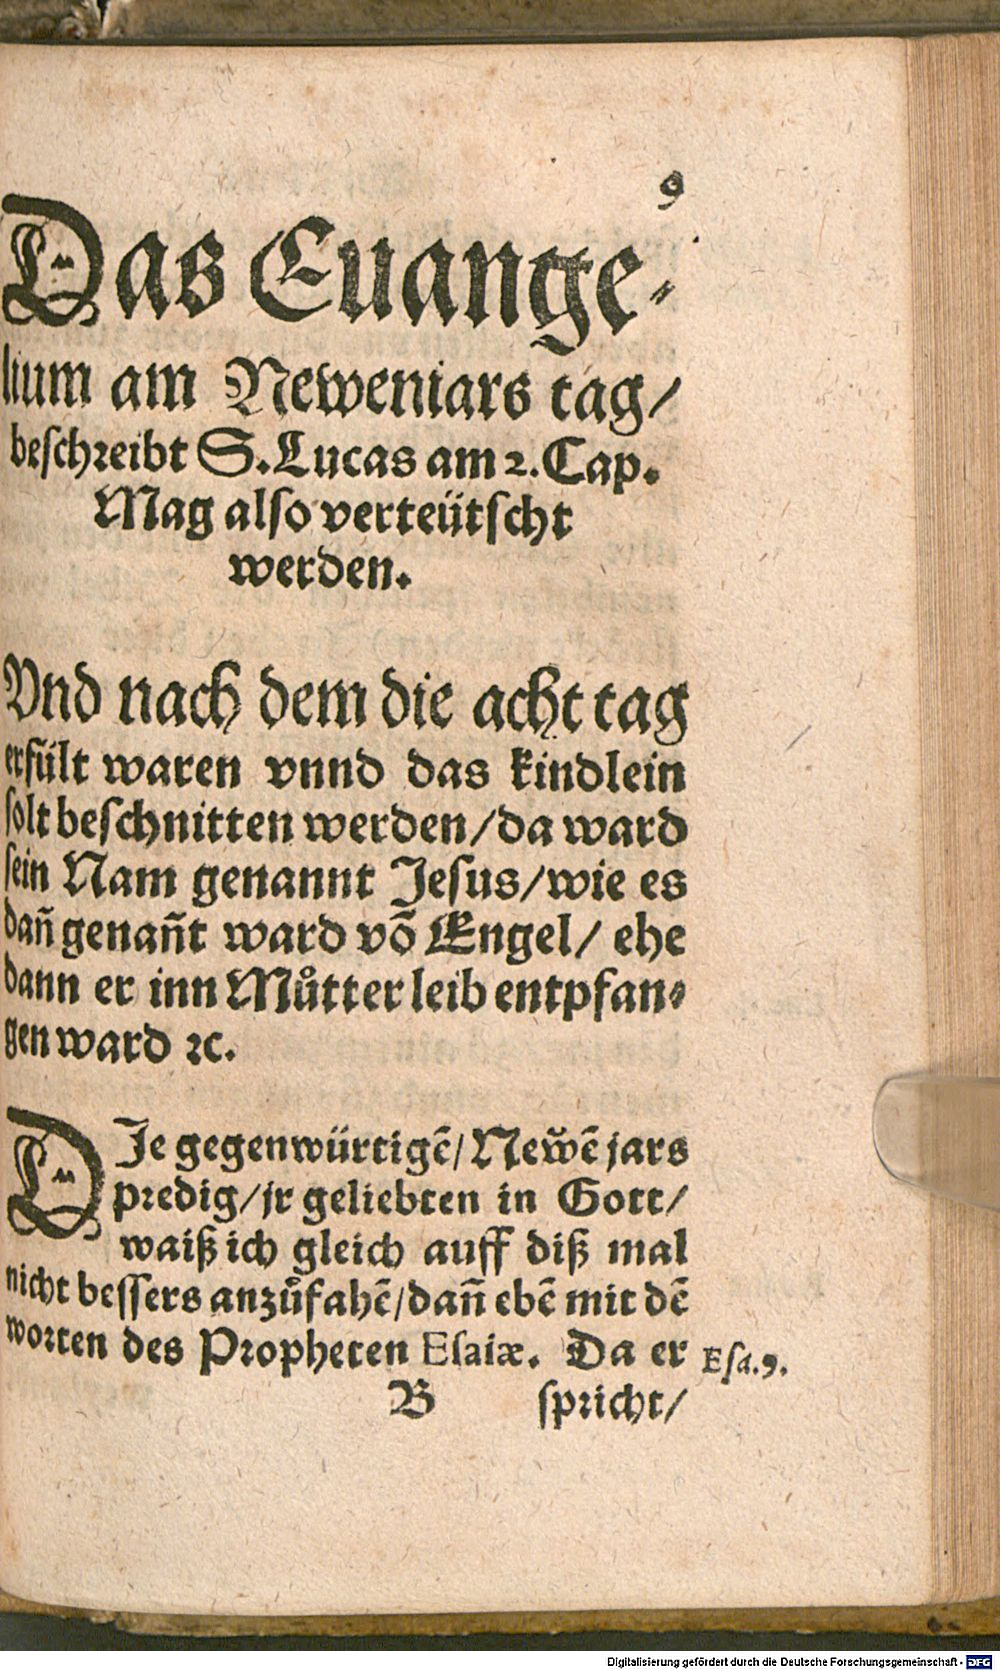 9
Das Euange-
lium am Neweniars tag/
beschreibt S. Lucas am 2. Cap.
Mag also verteütscht
werden.
Vnd nach dem die acht tag
erfült waren vnnd das kindlein
solt beschnitten werden/da ward
sein Nam genannt Jesus/wie es
dañ genañt ward võ Engel/ ehe
dann er inn Můtter leib entpfan-
gen ward ꝛc.
DJe gegenwürtigẽ/ Neẘẽ jars
predig/jr geliebten in Gott/
waiß ich gleich auff diß mal
nicht bessers anzůfahẽ/dañ ebẽ mit dẽ
worten des Propheten Esaiæ. Da er
Esa. 9.
B
spricht/
Digitalisierung gefördert durch die Deutsche Forschungsgemeinschaft - DFG